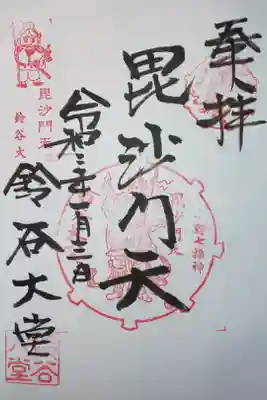 奉拝
毘沙門天
令和三年一月三日
鈴谷大堂
毘沙門天
鈴谷大
七福神